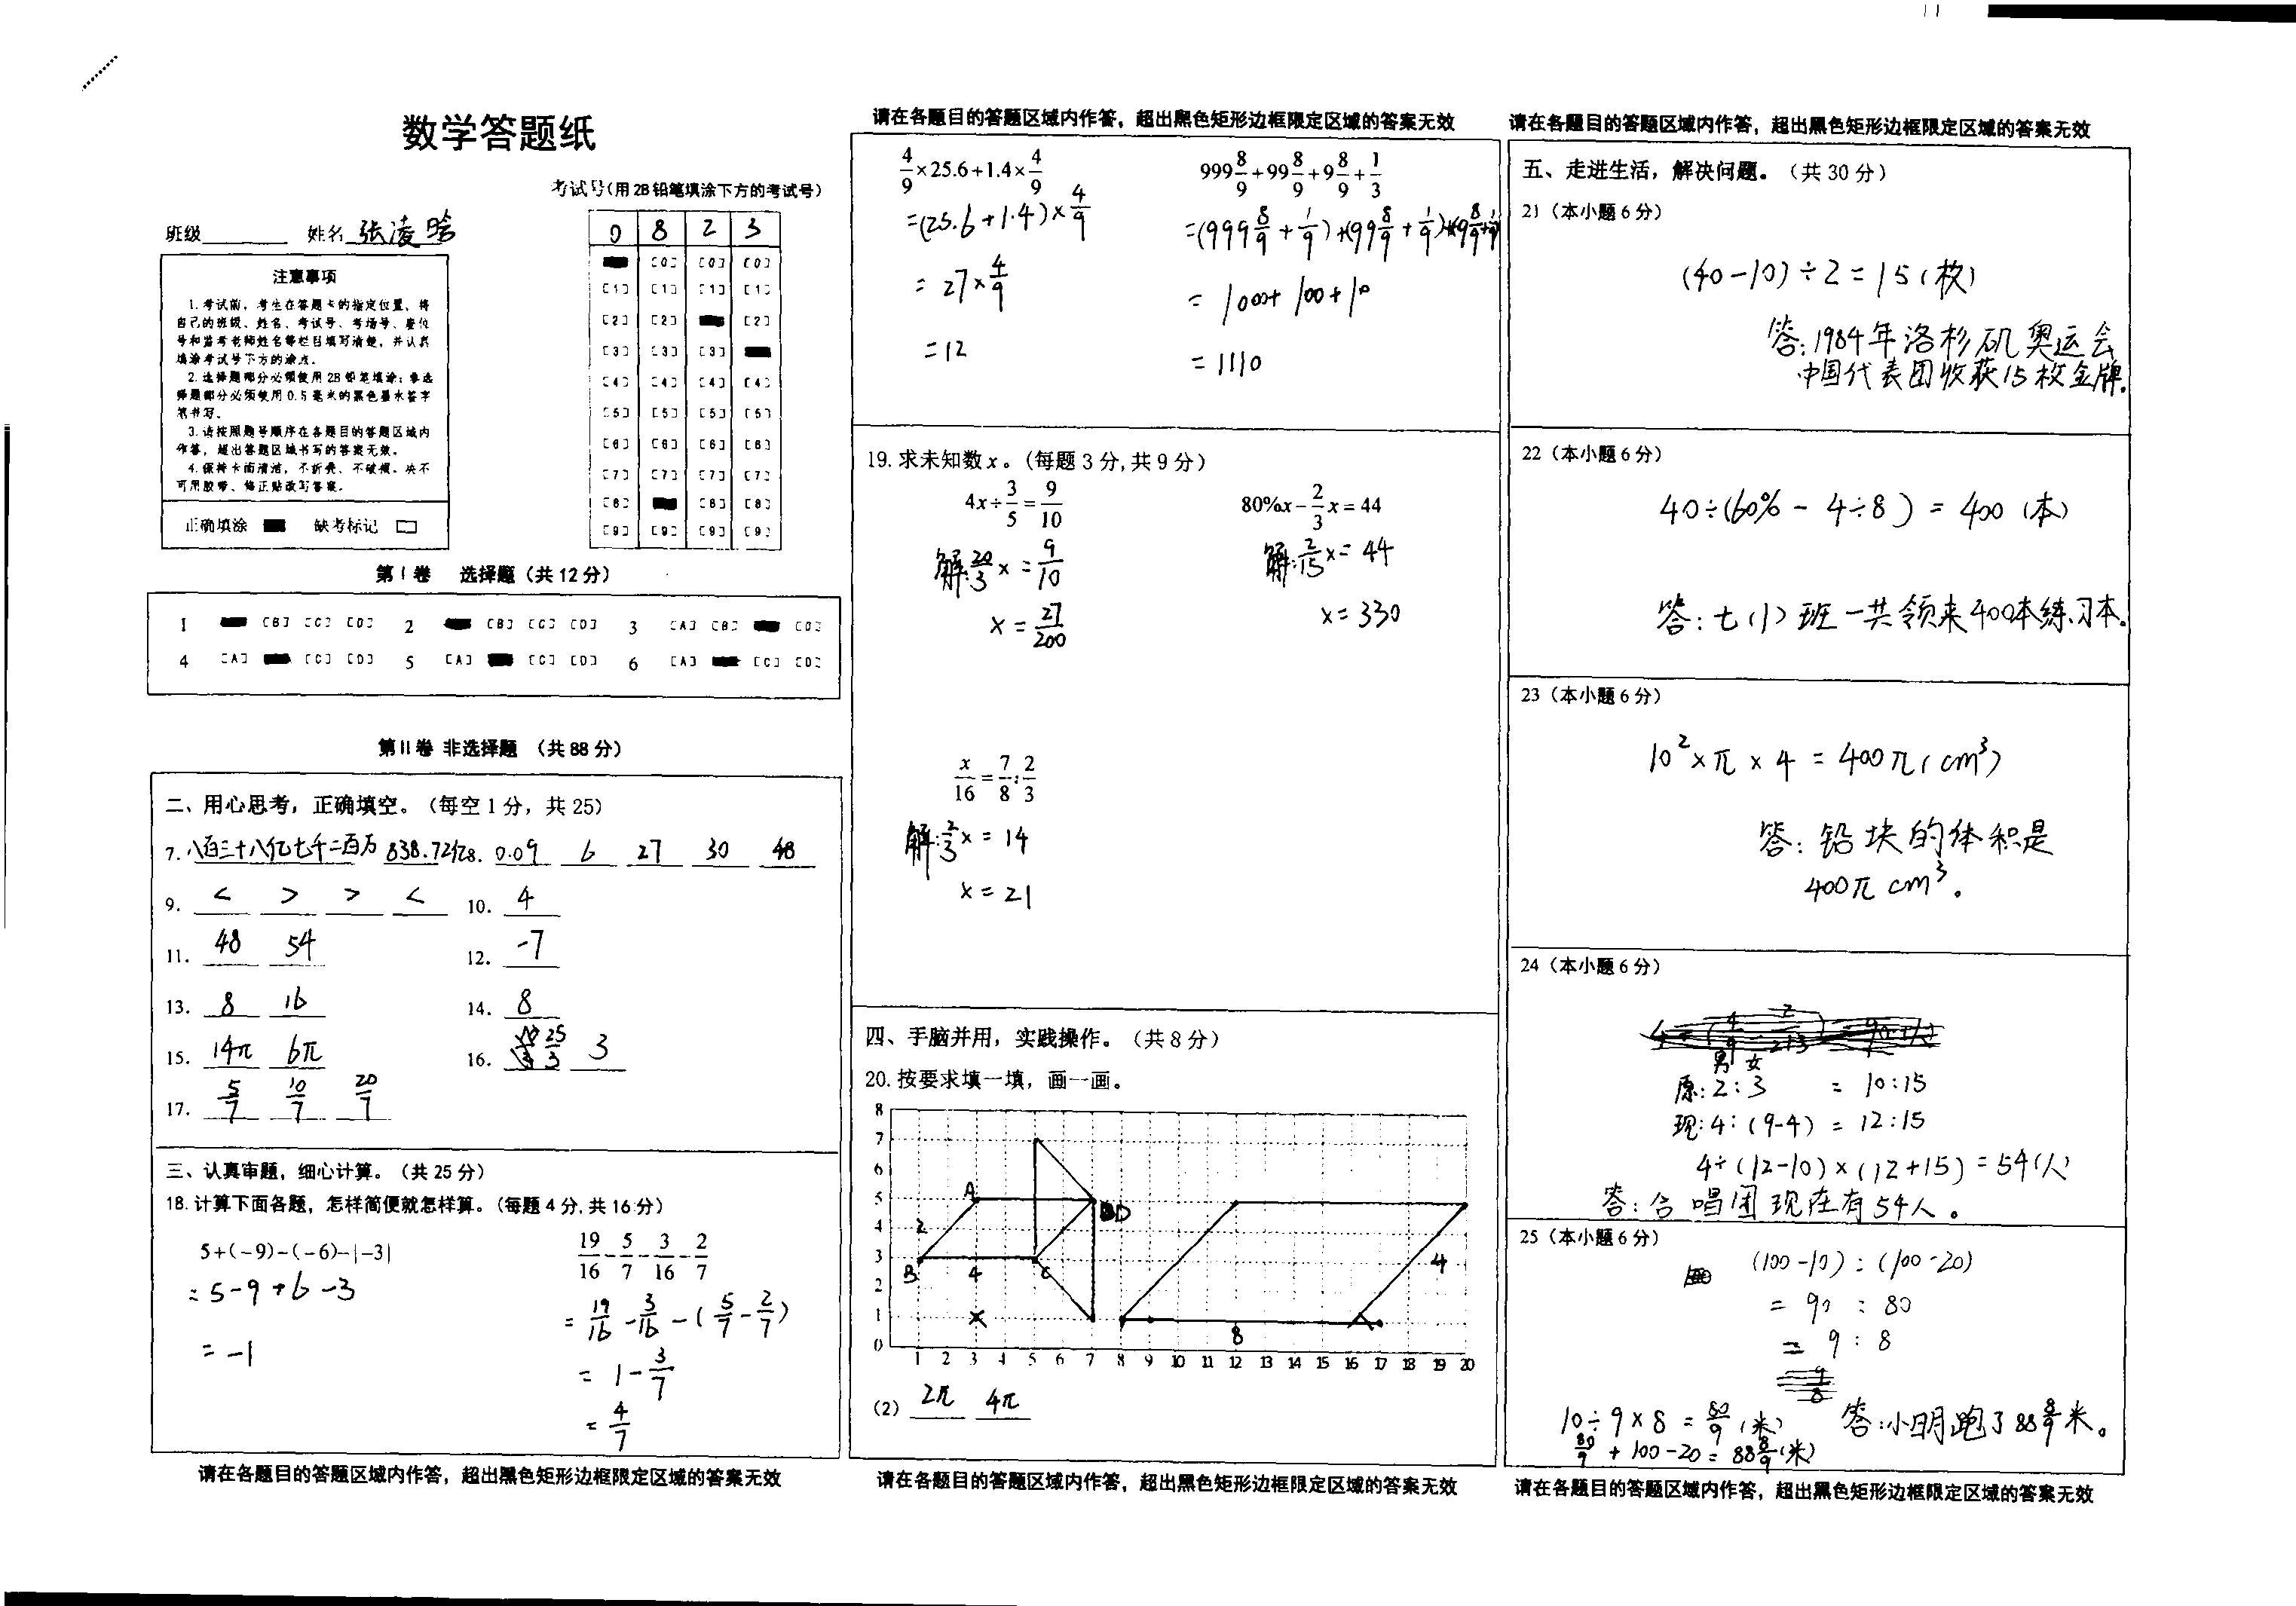 数学答题纸
考试号(用2B铅笔填涂下方的考试号)
班级 姓名 张凌晗
0 8 2 3
注意事项
1.考试前,考生在答题卡的指定位置,将
自己的班级、姓名、考试号、考场号、座位
号和监考老师姓名等栏目填写清楚,并认真
填涂考试号下方的涂点。
2.选择题部分必须使用2B铅笔填涂;非选
择题部分必须使用0.5毫米的黑色墨水签字
笔书写。
3.请按照题号顺序在各题目的答题区域内
作答,超出答题区域书写的答案无效。
4.保持卡面清洁,不折叠、不破损。决不
可用胶带、修正贴改写答案。
正确填涂 缺考标记
[0] [0] [0]
[1] [1] [1] [1]
[2] [2] [2]
[3] [3] [3]
[4] [4] [4] [4]
[5] [5] [5] [5]
[6] [6] [6] [6]
[7] [7] [7] [7]
[8] [8] [8]
[9] [9] [9] [9]
第 I 卷 选择题(共 12 分)
1 [B] [C] [D] 2 [B] [C] [D] 3 [A] [B] [D]
4 [A] [C] [D] 5 [A] [C] [D] 6 [A] [C] [D]
第 II 卷 非选择题 (共 88 分)
二、用心思考,正确填空。(每空 1 分,共 25)
7. 八百三十八亿七千二百万 838.72亿 8. 0.09 6 27 30 48
9. < > > < 10. 4
11. 48 54 12. -7
13. 8 16 14. 8
15. 14π 6π 16. 25/3 3
17. 5/7 10/7 20/7
三、认真审题,细心计算。(共 25 分)
18.计算下面各题,怎样简便就怎样算。(每题 4 分,共 16 分)
5+(−9)−(−6)−|−3| 19/16−5/7−3/16−2/7
=5-9+6-3 =19/16-3/16-(5/7-2/7)
=-1 =1-3/7
=4/7
请在各题目的答题区域内作答,超出黑色矩形边框限定区域的答案无效
请在各题目的答题区域内作答,超出黑色矩形边框限定区域的答案无效
4/9×25.6+1.4×4/9 999 8/9+99 8/9+9 8/9+1/3
=(25.6+1.4)×4/9 =(999 8/9+1/9)+(99 8/9+1/9)+(9 8/9+1/9)
=27×4/9 =1000+100+10
=12 =1110
19.求未知数 x 。(每题 3 分,共 9 分)
4x÷3/5=9/10 80%x−2/3x=44
解:20/3x=9/10 解:2/15x=44
x=27/200 x=330
x/16=7/8:2/3
解:2/3x=14
x=21
四、手脑并用,实践操作。(共 8 分)
20.按要求填一填,画一画。
8
7
6
5 A D
4 2
3 B 4 C 4
2
1 8
0
1 2 3 4 5 6 7 8 9 10 11 12 13 14 15 16 17 18 19 20
(2) 2π 4π
请在各题目的答题区域内作答,超出黑色矩形边框限定区域的答案无效
请在各题目的答题区域内作答,超出黑色矩形边框限定区域的答案无效
五、走进生活,解决问题。(共 30 分)
21(本小题 6 分)
(40-10)÷2=15(枚)
答:1984年洛杉矶奥运会
中国代表团收获15枚金牌.
22(本小题 6 分)
40÷(60%-4÷8)=400(本)
答:七(1)班一共领来400本练习本.
23(本小题 6 分)
10²×π×4=400π(cm³)
答:铅块的体积是
400πcm³。
24(本小题 6 分)
男 女
原:2:3 =10:15
现:4:(9-4)=12:15
4÷(12-10)×(12+15)=54(人)
答:合唱团现在有54人。
25(本小题 6 分)
(100-10):(100-20)
=90:80
=9:8
10÷9×8=80/9(米)
80/9+100-20=88 8/9(米)
答:小明跑了88 8/9米。
请在各题目的答题区域内作答,超出黑色矩形边框限定区域的答案无效